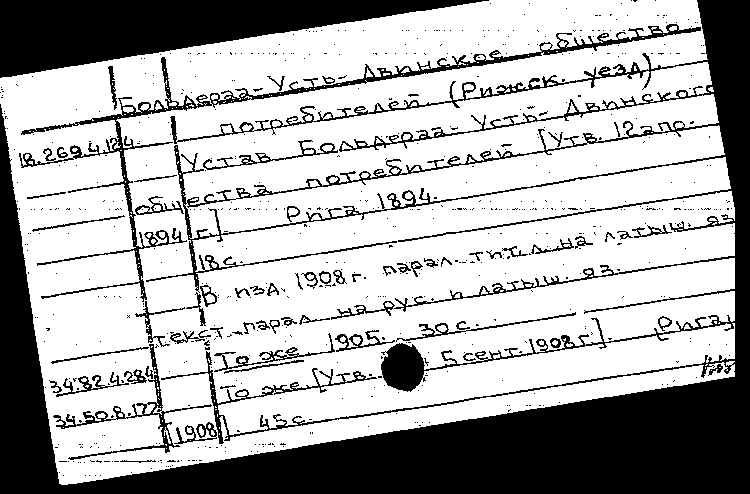 Больдераа-Усть-Двинское общество
потребителей. (Рижск. уезд).
18.269.4.124. Устав Больдераа-Усть-Двинского
общества потребителей [Утв. 12 апр.
1894 г.]. Рига, 1894.
18 с.
В изд. 1908 г. парал. тит. л. на латыш. яз
текст парал. на рус. и латыш. яз.
То же 1905. 30 с.
34.82.4.284 То же [Утв. 5 сент. 1908 г.]. [Рига,
34.50.8.177 [1908]. 45 с.